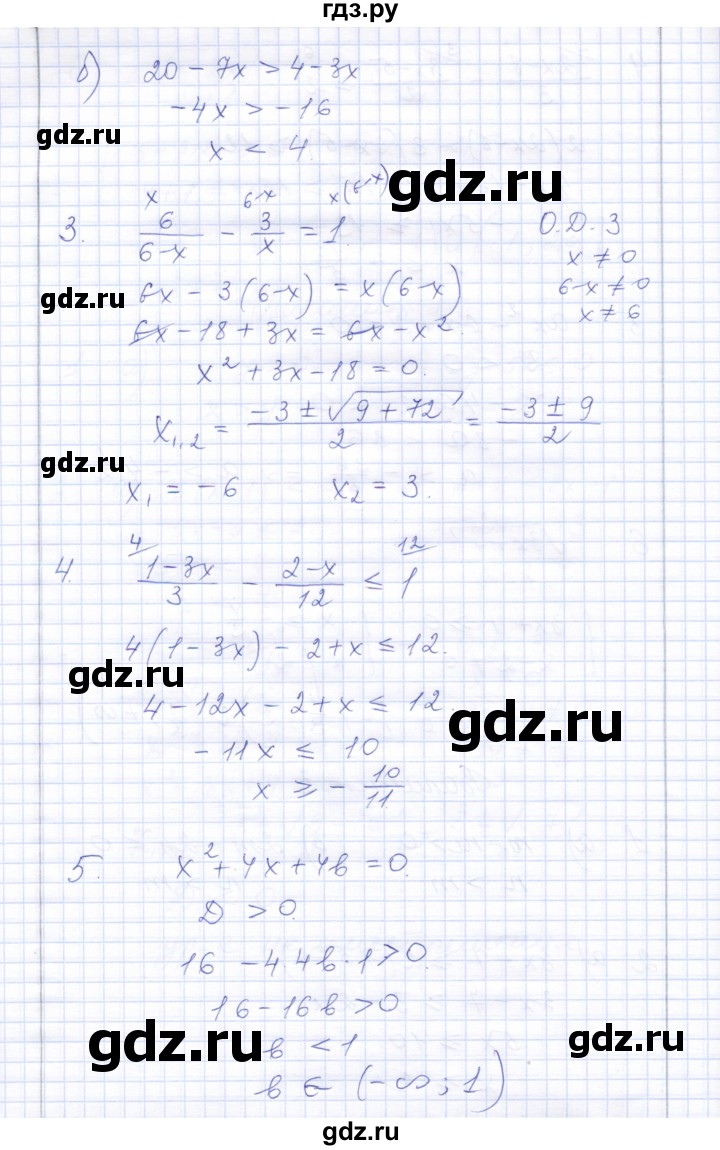 гдз.ру
б) 20 - 7x > 4 - 3x
-4x > -16
x < 4.
gdz.ru
gdz.ru
x 6-x x(6-x)
3. 6/(6-x) - 3/x = 1. О.Д.З
x ≠ 0
gdz.ru
6x - 3(6-x) = x(6-x) 6-x ≠ 0
x ≠ 6
6x - 18 + 3x = 6x - x².
x² + 3x - 18 = 0.
x₁,₂ = (-3 ± √(9 + 72))/2 = (-3 ± 9)/2
gdz.ru
x₁ = -6 x₂ = 3.
4 12
4. (1-3x)/3 - (2-x)/12 ≤ 1
4(1 - 3x) - 2 + x ≤ 12.
gdz.ru
4 - 12x - 2 + x ≤ 12.
gdz.ru
-11x ≤ 10
x ≥ - 10/11.
5. x² + 4x + 4b = 0.
D > 0.
16 - 4.4b·1 > 0.
16 - 16b > 0
gdz.ru
gdz.ru
b < 1
b ∈ (-∞; 1)
gdz.ru